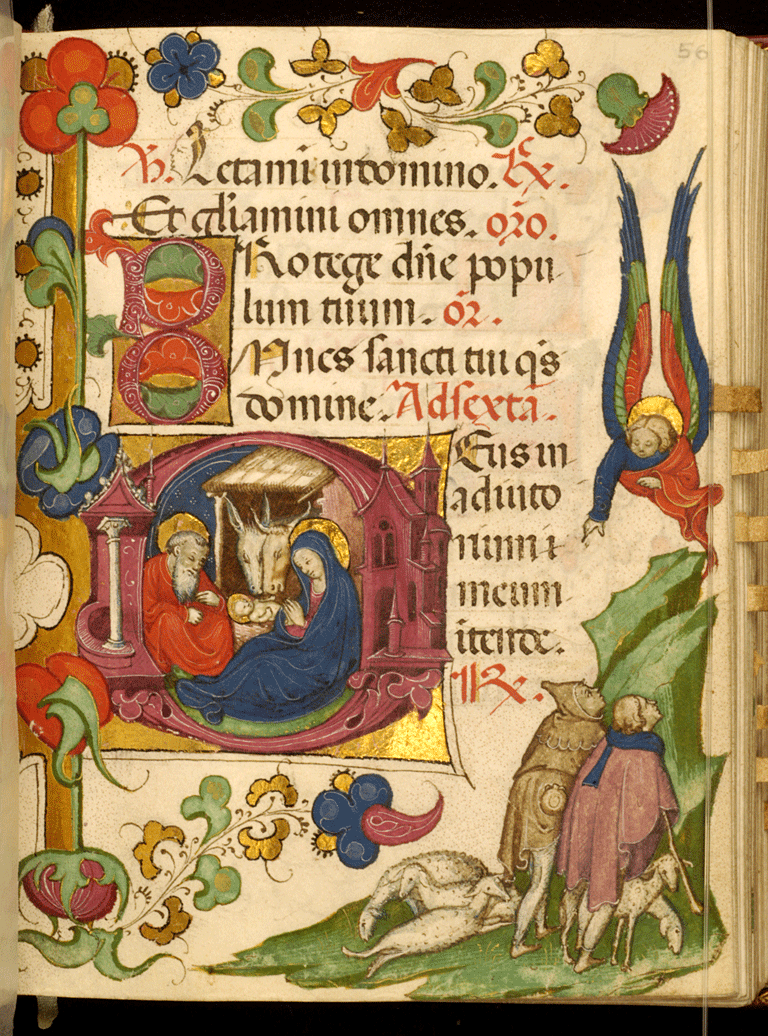 56
V. Letami in domino. Rx.
Et gliamini omnes. oro.
PRotege dñe popu
lum tuum. or.
OMnes sancti tui qs
domine. Ad sextā.
DEus in
adiuto
rium i
meum
itende.
Rx.